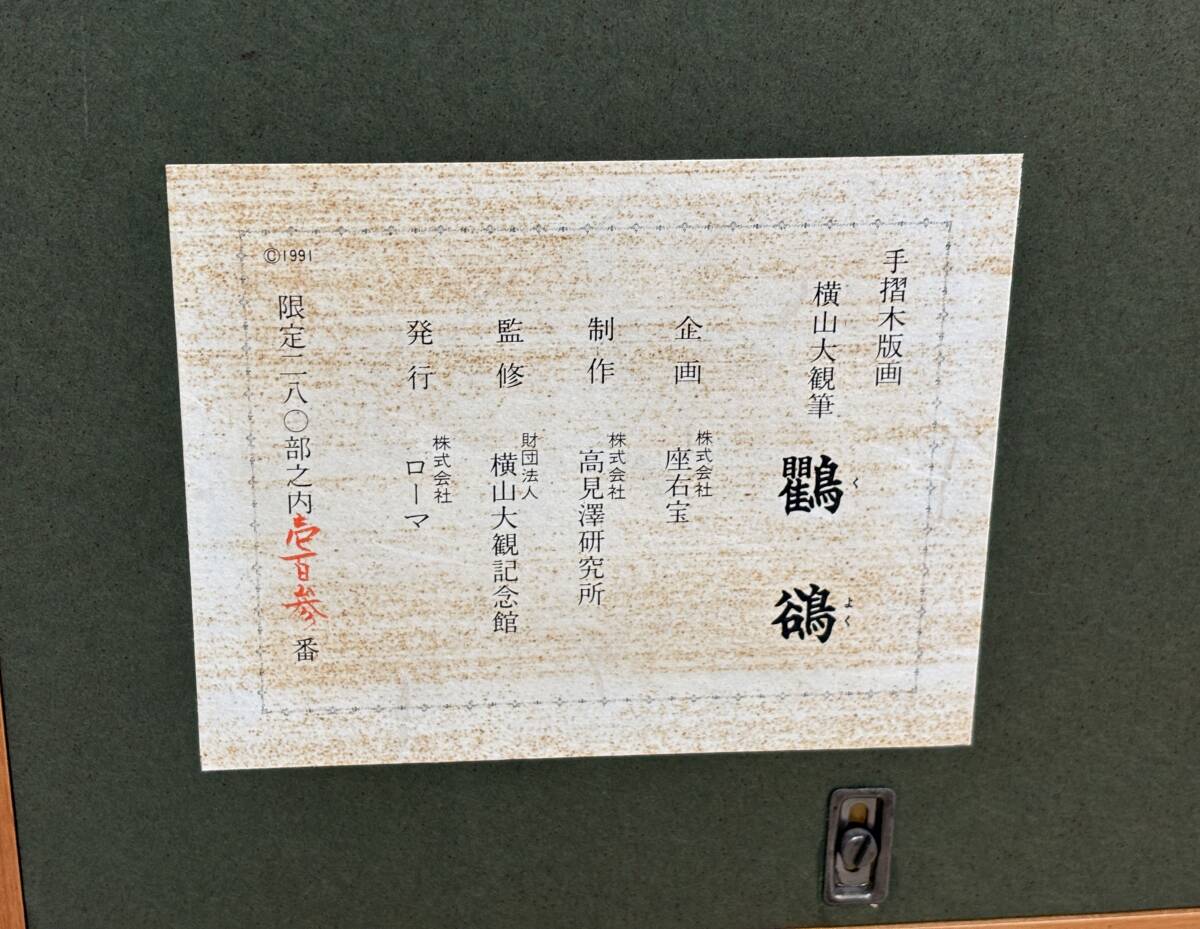 手摺木版画
横山大観筆
鸜鵒
く
よく
企画 株式会社 座右宝
制作 株式会社 高見澤研究所
監修 財団法人 横山大観記念館
発行 株式会社 ローマ
©1991
限定二八〇部之内壱百参番